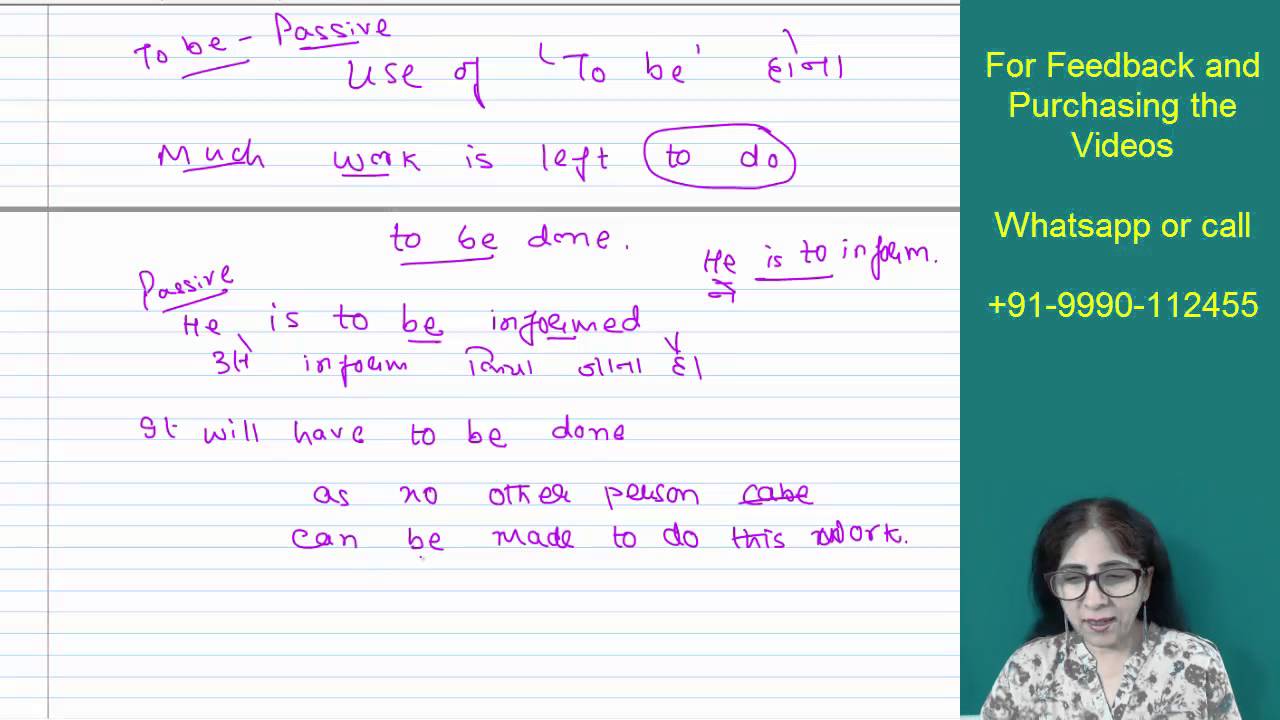 To be - Passive
Use of 'To be' होना
Much work is left to do
to be done.
He is to inform.
Passive
ने
He is to be informed
उसे inform किया जाना है।
It will have to be done
as no other person cabe
can be made to do this work.
For Feedback and
Purchasing the
Videos
Whatsapp or call
+91-9990-112455